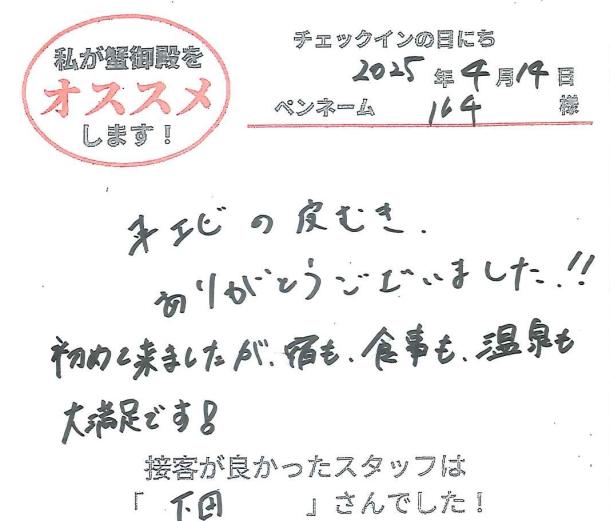 私が蟹御殿を
オススメ
します!
チェックインの日にち
2025年4月14日
ペンネーム 164 様
手エビの皮むき、
ありがとうございました!!
初めて来ましたが、宿も、食事も、温泉も
大満足です!
接客が良かったスタッフは
「下田」さんでした!